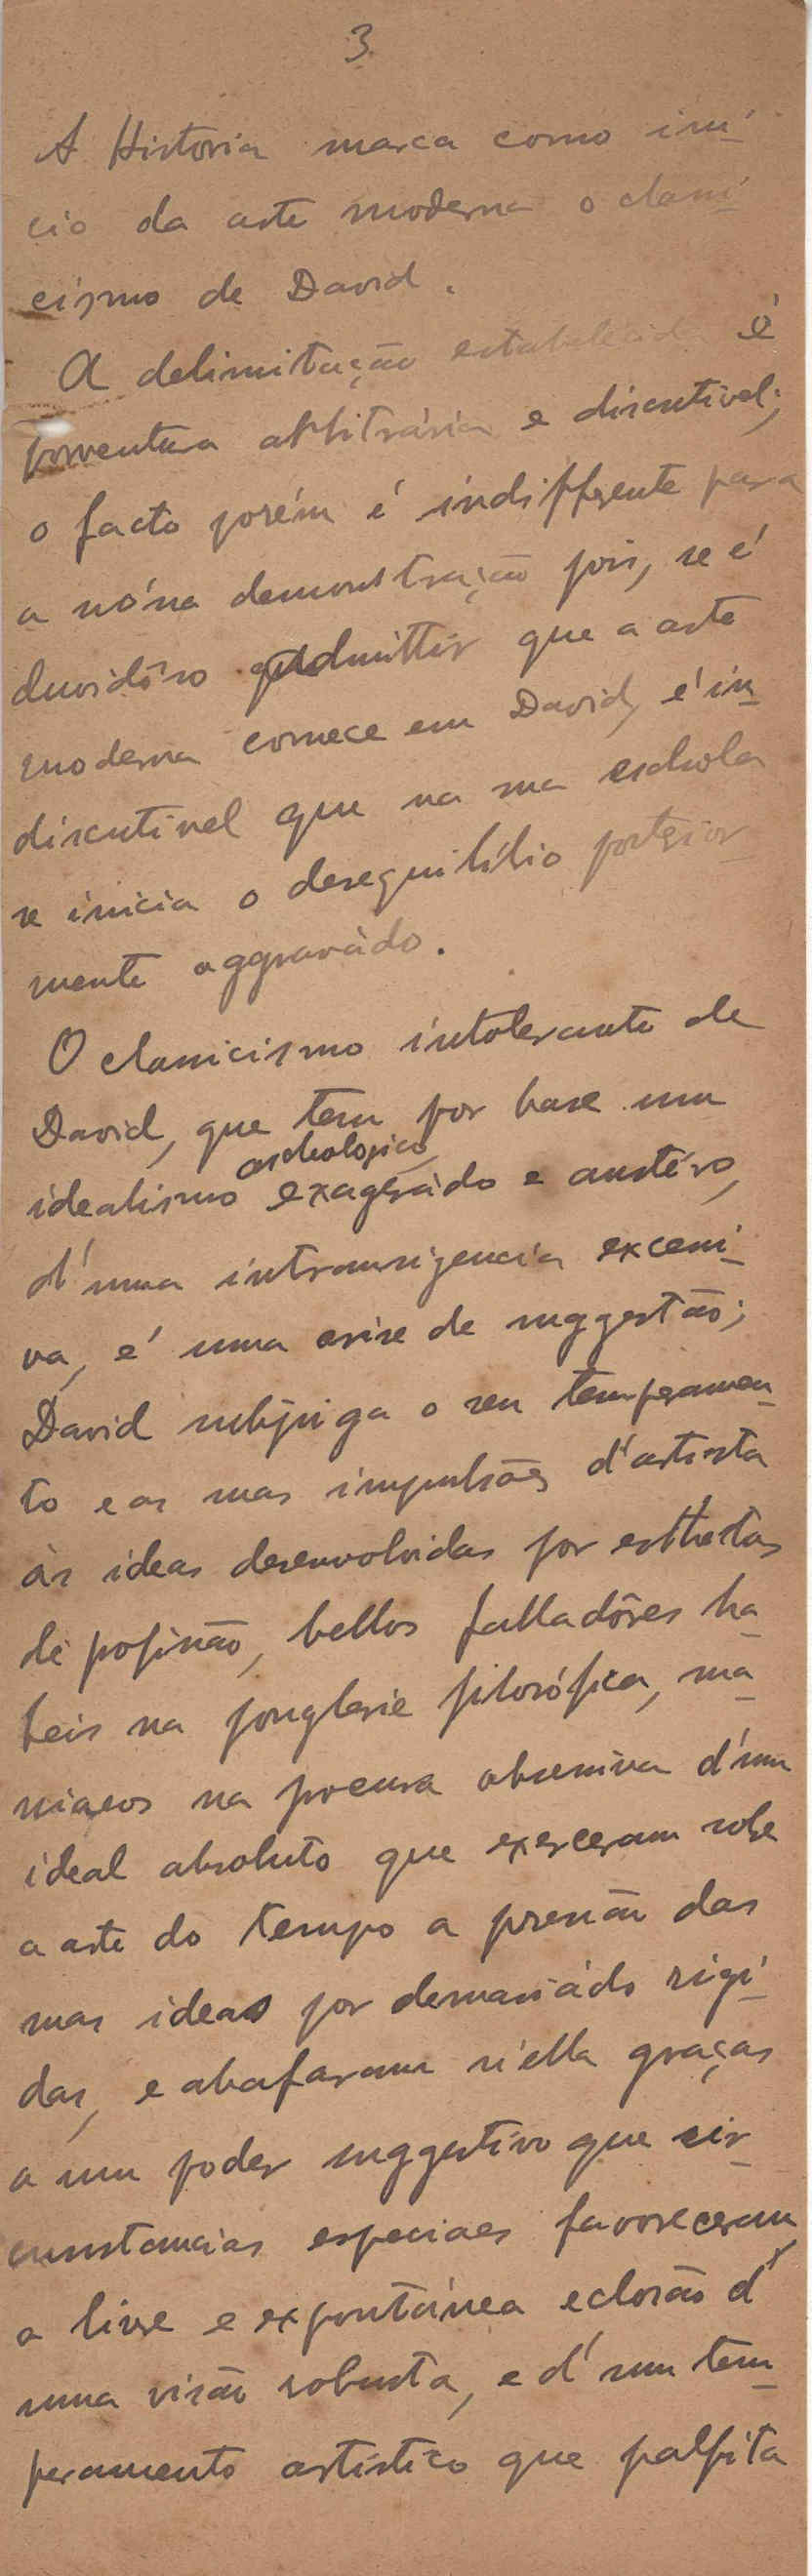 3
A Historia marca como iní-
cio da arte moderna o classi-
cismo de David.
A delimitação estabelecida é
porventura arbitrária e discutivel;
o facto porém é indifferente para
a nóssa demonstração pois, se é
duvidôso admittir que a arte
moderna comece em David, é in-
discutivel que na sua eschola
se inicia o desequilíbrio posterior-
mente aggravàdo.
O classicismo intolerante de
David, que tem por base um
archeologico
idealismo exageràdo e austéro,
d'uma intransigencia excessi-
va, é uma crise de suggestão;
David subjuga o seu temperamen-
to e as suas impulsões d'artista
às ideas desenvolvidas por esthetas
de profissão, bellos falladôres ha-
beis na jonglerie filosófica, ma-
niacos na procura obsessiva d'um
ideal absoluto que exerceram sobre
a arte do tempo a pressão das
suas ideas por demasiádo rigi-
das, e abafaram n'ella graças
a um poder suggestivo que cir-
cunstancias especiaes favoreceram
a livre e expontánea eclosão d'
uma visão robusta, e d'um tem-
peramento artístico que palpita